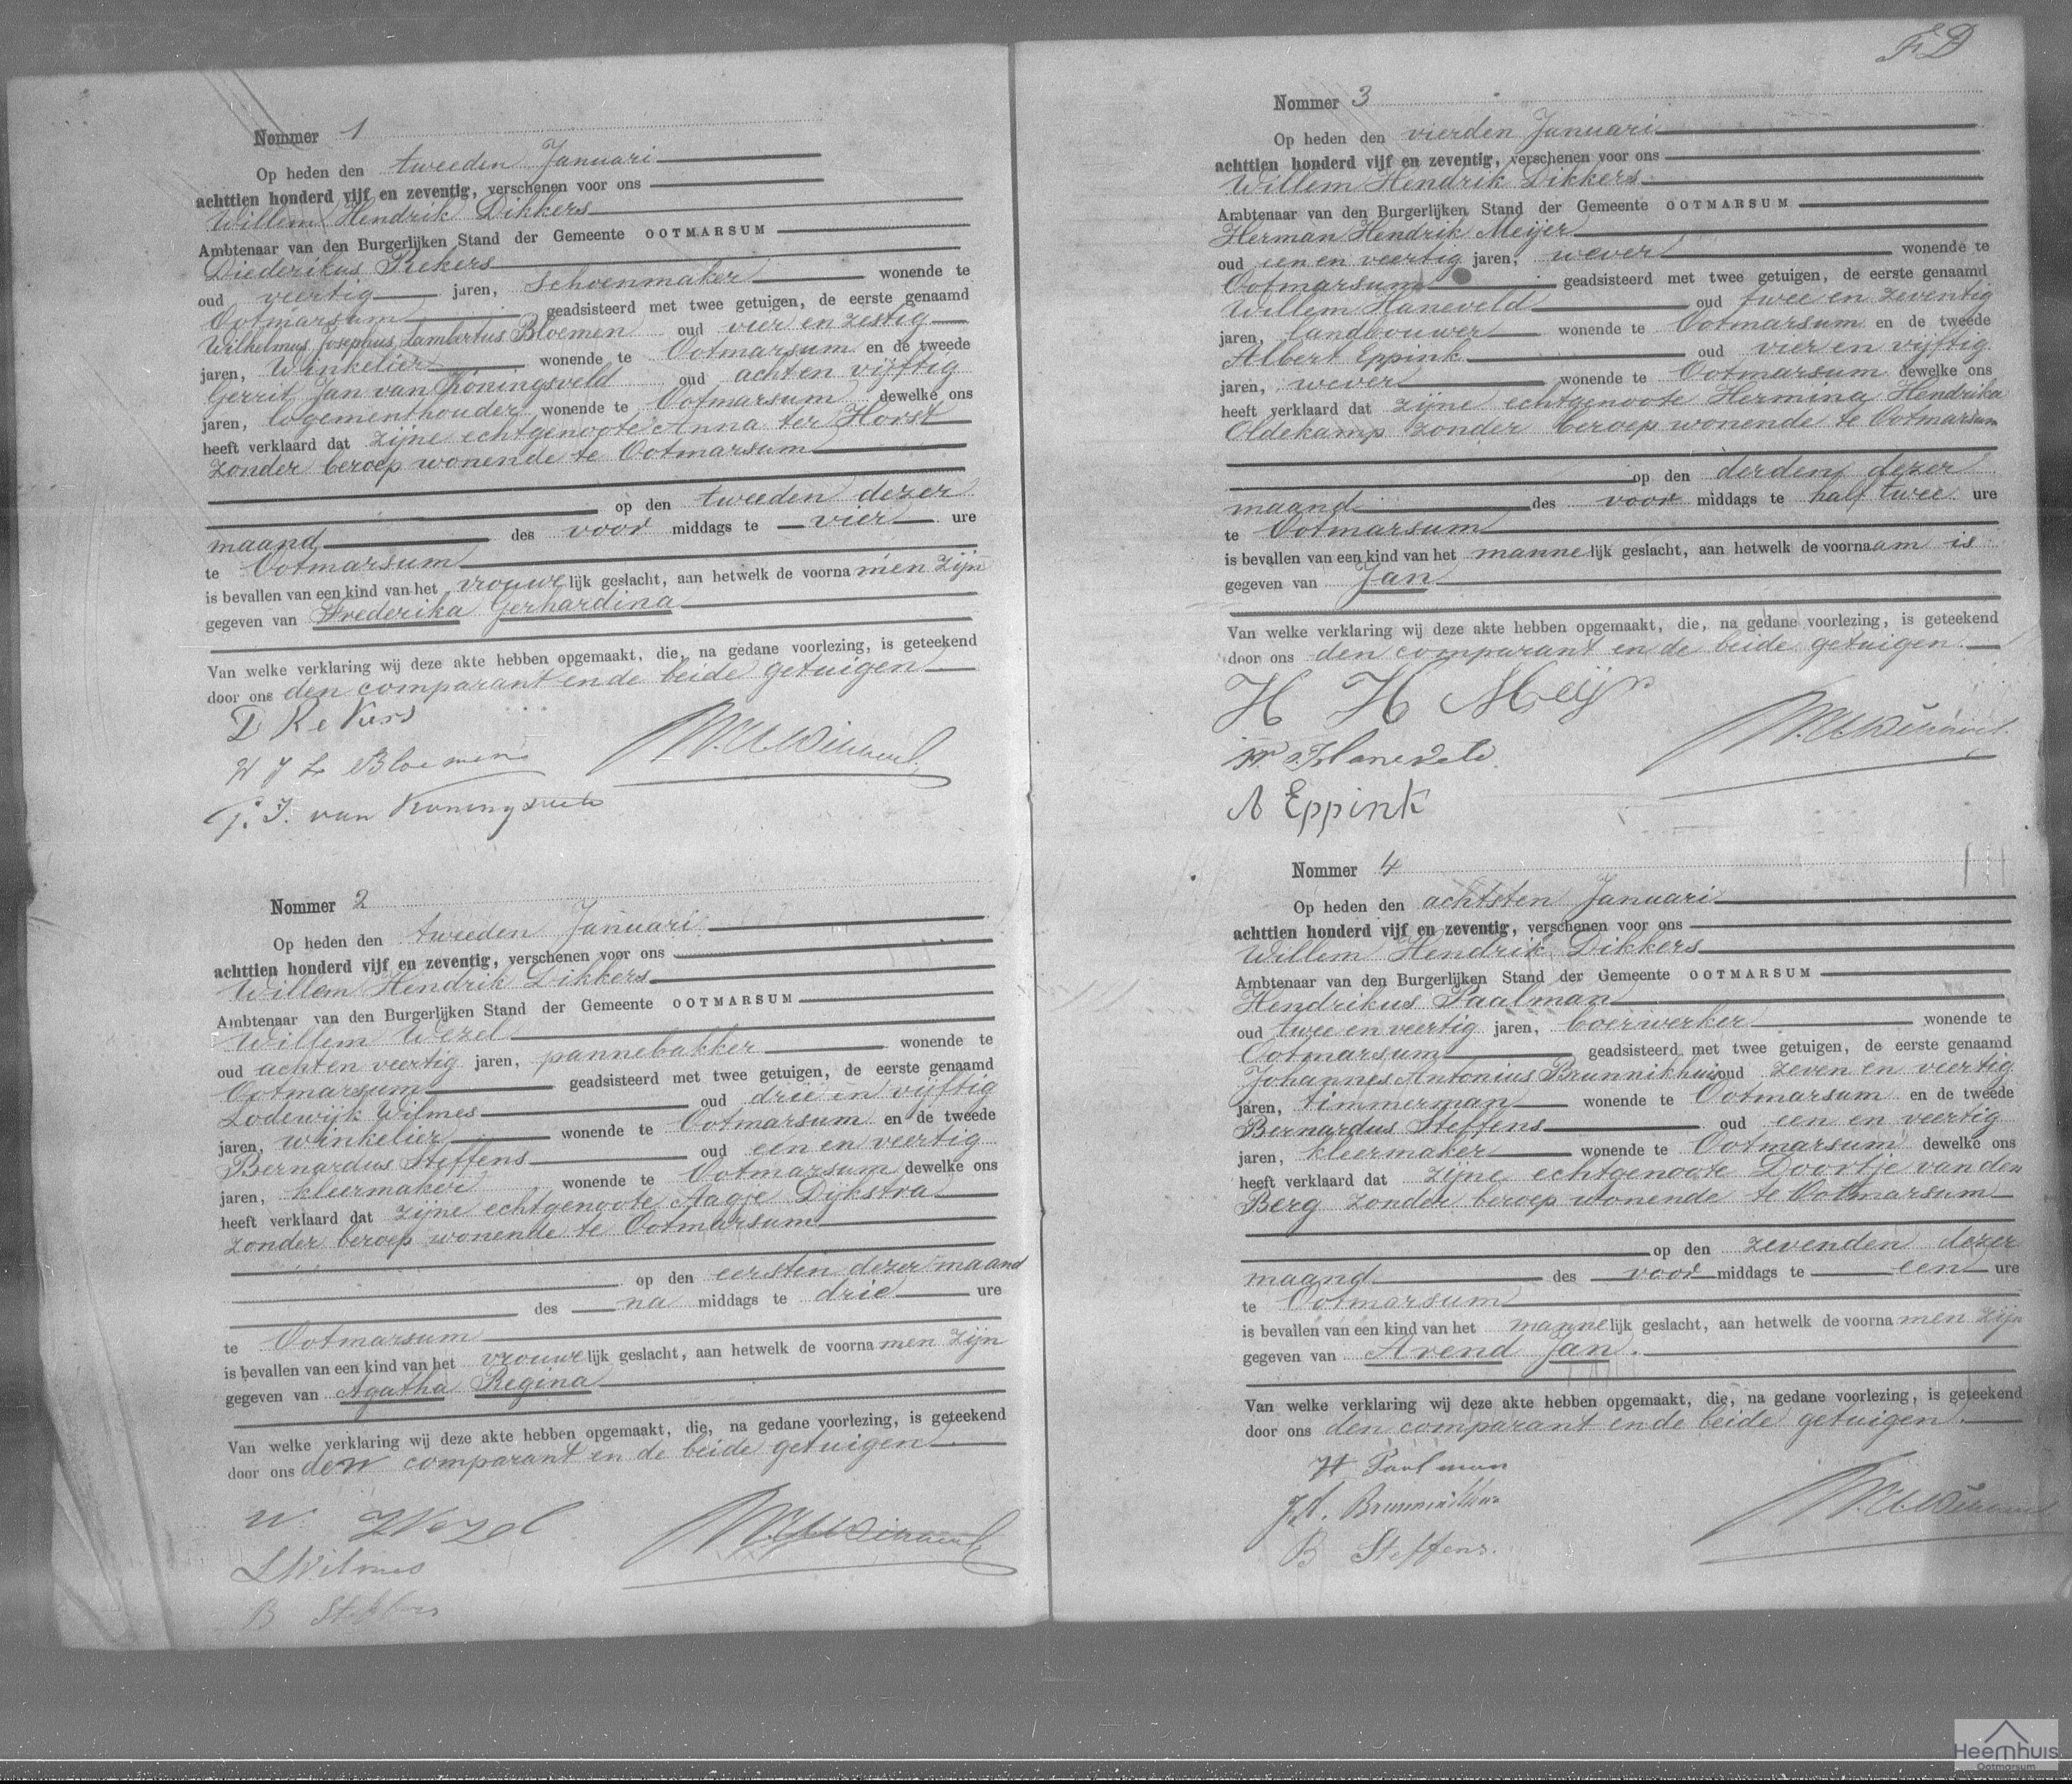 Nommer 1
Op heden den tweeden Januari
achttien honderd vijf en zeventig, verschenen voor ons
Willem Hendrik Dikkers
Ambtenaar van den Burgerlijken Stand der Gemeente OOTMARSUM
Diederikus Rekers
oud veertig jaren, schoenmaker wonende te
Ootmarsum geadsisteerd met twee getuigen, de eerste genaamd
Wilhelmus Josephus Lambertus Bloemen oud vier en zestig
jaren, Winkelier wonende te Ootmarsum en de tweede
Gerrit Jan van Koningsveld oud acht en vijftig
jaren, logementhouder wonende te Ootmarsum dewelke ons
heeft verklaard dat zijne echtgenoote Anna ter Horst
zonder beroep wonende te Ootmarsum
op den tweeden dezer
maand des voor middags te vier ure
te Ootmarsum
is bevallen van een kind van het vrouwelijk geslacht, aan hetwelk de voornamen zijn
gegeven van Frederika Gerhardina
Van welke verklaring wij deze akte hebben opgemaakt, die, na gedane voorlezing, is geteekend
door ons den comparant en de beide getuigen
D Rekers
W J L Bloemen
G. J. van Koningsveld
Nommer 2
Op heden den tweeden Januari
achttien honderd vijf en zeventig, verschenen voor ons
Willem Hendrik Dikkers
Ambtenaar van den Burgerlijken Stand der Gemeente OOTMARSUM
Willem Wezel
oud acht en veertig jaren, pannebakker wonende te
Ootmarsum geadsisteerd met twee getuigen, de eerste genaamd
Lodewijk Wilmes oud drie en vijftig
jaren, winkelier wonende te Ootmarsum en de tweede
Bernardus Steffens oud een en veertig
jaren, kleermaker wonende te Ootmarsum dewelke ons
heeft verklaard dat zijne echtgenoote Aagje Dijkstra
zonder beroep wonende te Ootmarsum
op den eersten dezer maand
des na middags te drie ure
te Ootmarsum
is bevallen van een kind van het vrouwelijk geslacht, aan hetwelk de voornamen zijn
gegeven van Agatha Regina
Van welke verklaring wij deze akte hebben opgemaakt, die, na gedane voorlezing, is geteekend
door ons den comparant en de beide getuigen
W Wezel
L Wilmes
B Steffens
Nommer 3
Op heden den vierden Januari
achttien honderd vijf en zeventig, verschenen voor ons
Willem Hendrik Dikkers
Ambtenaar van den Burgerlijken Stand der Gemeente OOTMARSUM
Herman Hendrik Meijer
oud een en veertig jaren, wever wonende te
Ootmarsum geadsisteerd met twee getuigen, de eerste genaamd
Willem Haneveld oud twee en zeventig
jaren, landbouwer wonende te Ootmarsum en de tweede
Albert Eppink oud vier en vijftig
jaren, wever wonende te Ootmarsum dewelke ons
heeft verklaard dat zijne echtgenoote Hermina Hendrika
Oldekamp zonder beroep wonende te Ootmarsum
op den derden dezer
maand des voor middags te half twee ure
te Ootmarsum
is bevallen van een kind van het mannelijk geslacht, aan hetwelk de voornaam is
gegeven van Jan
Van welke verklaring wij deze akte hebben opgemaakt, die, na gedane voorlezing, is geteekend
door ons den comparant en de beide getuigen.
H H Meijr
W Haneveld
A Eppink
Nommer 4
Op heden den achtsten Januari
achttien honderd vijf en zeventig, verschenen voor ons
Willem Hendrik Dikkers
Ambtenaar van den Burgerlijken Stand der Gemeente OOTMARSUM
Hendrikus Paalman
oud twee en veertig jaren, boerwerker wonende te
Ootmarsum geadsisteerd met twee getuigen, de eerste genaamd
Johannes Antonius Brunnikhuis oud zeven en veertig
jaren, timmerman wonende te Ootmarsum en de tweede
Bernardus Steffens oud een en veertig
jaren, kleermaker wonende te Ootmarsum dewelke ons
heeft verklaard dat zijne echtgenoote Doortje van den
Berg zonder beroep wonende te Ootmarsum
op den zevenden dezer
maand des voor middags te een ure
te Ootmarsum
is bevallen van een kind van het mannelijk geslacht, aan hetwelk de voornamen zijn
gegeven van Arend Jan.
Van welke verklaring wij deze akte hebben opgemaakt, die, na gedane voorlezing, is geteekend
door ons den comparant en de beide getuigen.
H Paalman
B Steffens.
Heemhuis
Ootmarsum